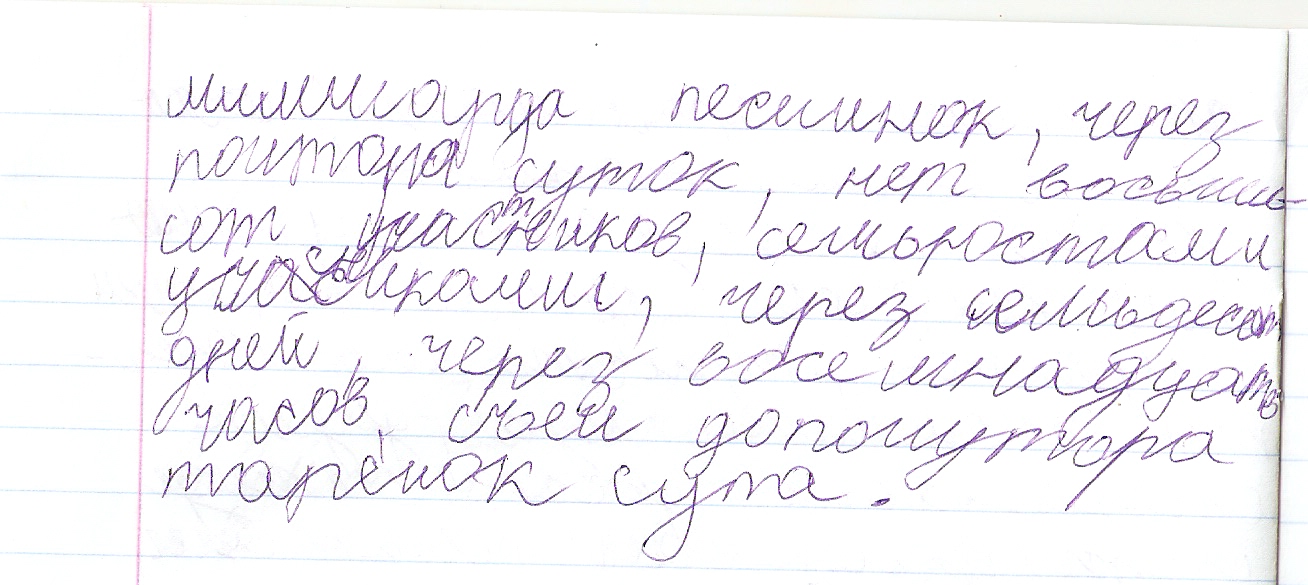 миллиарда песчинок, через
полтора суток, нет восьми-
сот участников, семьюстами
участниками, через семьдесят
дней, через восемнадцать
часов, съел дополутора
тарелок супа.